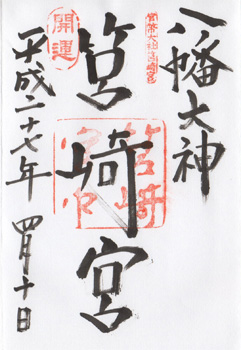 八幡大神
官幣大社筥崎宮
筥崎宮
筥崎宮印
開運
平成二十七年 四月十日